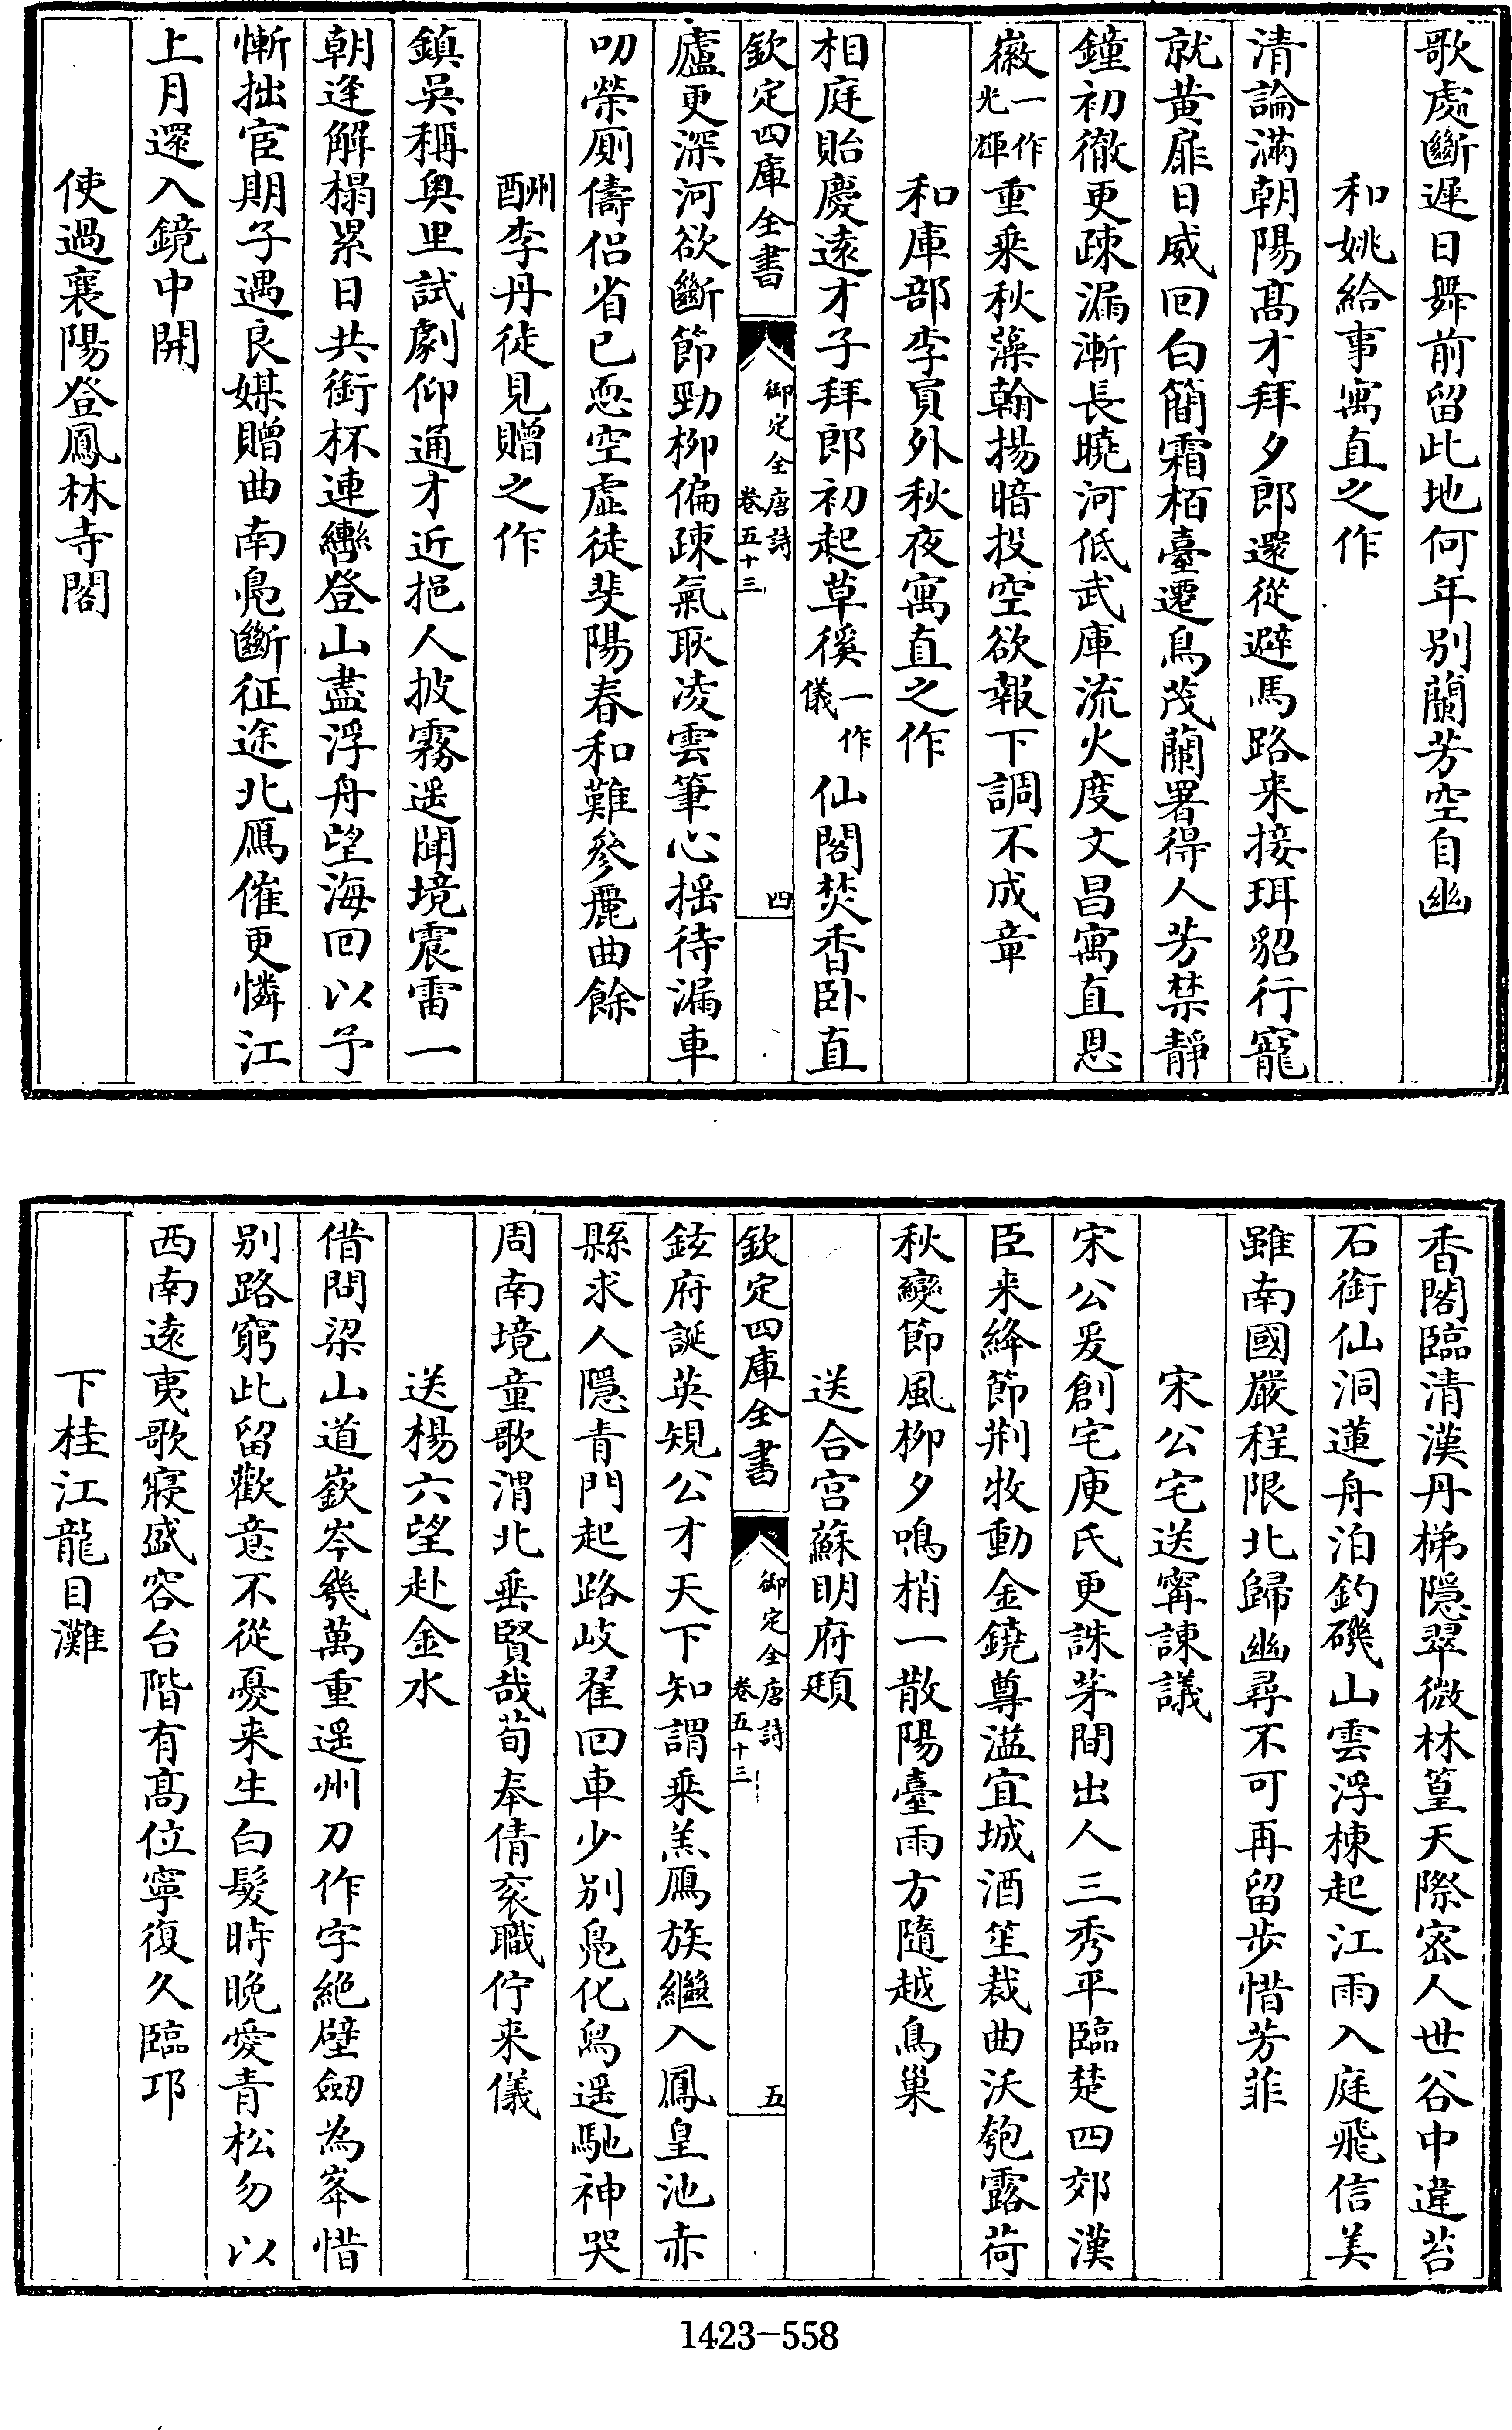 歌處斷遲日舞前留此地何年别蘭芳空自幽
和姚給事寓直之作
清論滿朝陽髙才拜夕郎還從避馬路来接珥貂行寵
就黄扉日威回白簡霜栢臺遷鳥茂蘭署得人芳禁靜
鐘初徹更疎漏漸長曉河低武庫流火度文昌寓直恩
徽一作光輝重乘秋藻翰揚暗投空欲報下調不成章
和庫部李員外秋夜寓直之作
相庭貽慶遠才子拜郎初起草徯一作儀仙閣焚香卧直
欽定四庫全書 御定全唐詩 卷五十三 四
廬更深河欲斷節勁柳偏疎氣耿凌雲筆心揺待漏車
叨榮厠儔侣省已恧空虚徒斐陽春和難參麗曲餘
酬李丹徒見贈之作
鎮吳稱奥里試劇仰通才近挹人披霧遥聞境震雷一
朝逢解榻累日共銜杯連轡登山盡浮舟望海回以予
慚拙宦期子遇良媒贈曲南凫斷征途北鴈催更憐江
上月還入鏡中開
使過襄陽登鳳林寺閣
香閣臨清漢丹梯隱翠微林篁天際宻人世谷中違苔
石銜仙洞蓮舟泊釣磯山雲浮棟起江雨入庭飛信美
雖南國嚴程限北歸幽尋不可再留步惜芳菲
宋公宅送甯諫議
宋公爰創宅庾氏更誅茅間出人三秀平臨楚四郊漢
臣来絳節荆牧動金鐃尊溢宜城酒笙裁曲沃匏露荷
秋變節風柳夕鳴梢一散陽臺雨方隨越鳥巢
送合宫蘇明府頲
欽定四庫全書 御定全唐詩 卷五十三 五
鉉府誕英規公才天下知謂乘羔鴈族繼入鳳皇池赤
縣求人隱青門起路岐翟回車少别凫化舄遥馳神哭
周南境童歌渭北垂賢哉荀奉倩衮職佇来儀
送楊六望赴金水
借問梁山道嶔岑幾萬重遥州刀作字絶壁劒為峯惜
别路窮此留歡意不從憂来生白髮時晚愛青松勿以
西南遠夷歌寢盛容台階有髙位寧復久臨邛
下桂江龍目灘
1423-558